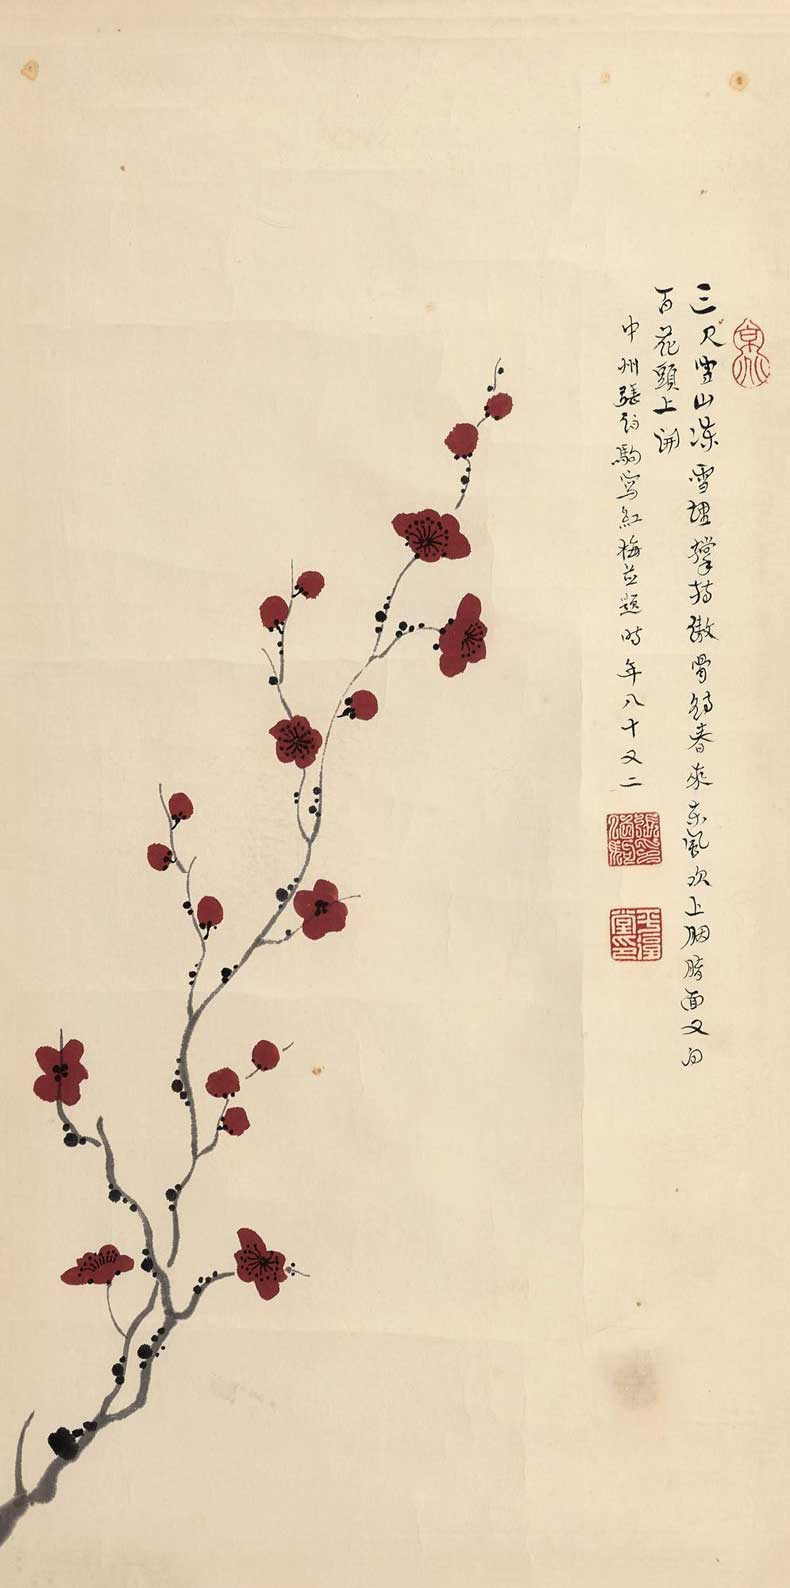 京兆
三尺山凍雪埋撐持傲骨待春來東風吹上胭脂面又向
百花頭上開
中州張伯駒寫紅梅並題時年八十又二
張印伯駒
平復堂印